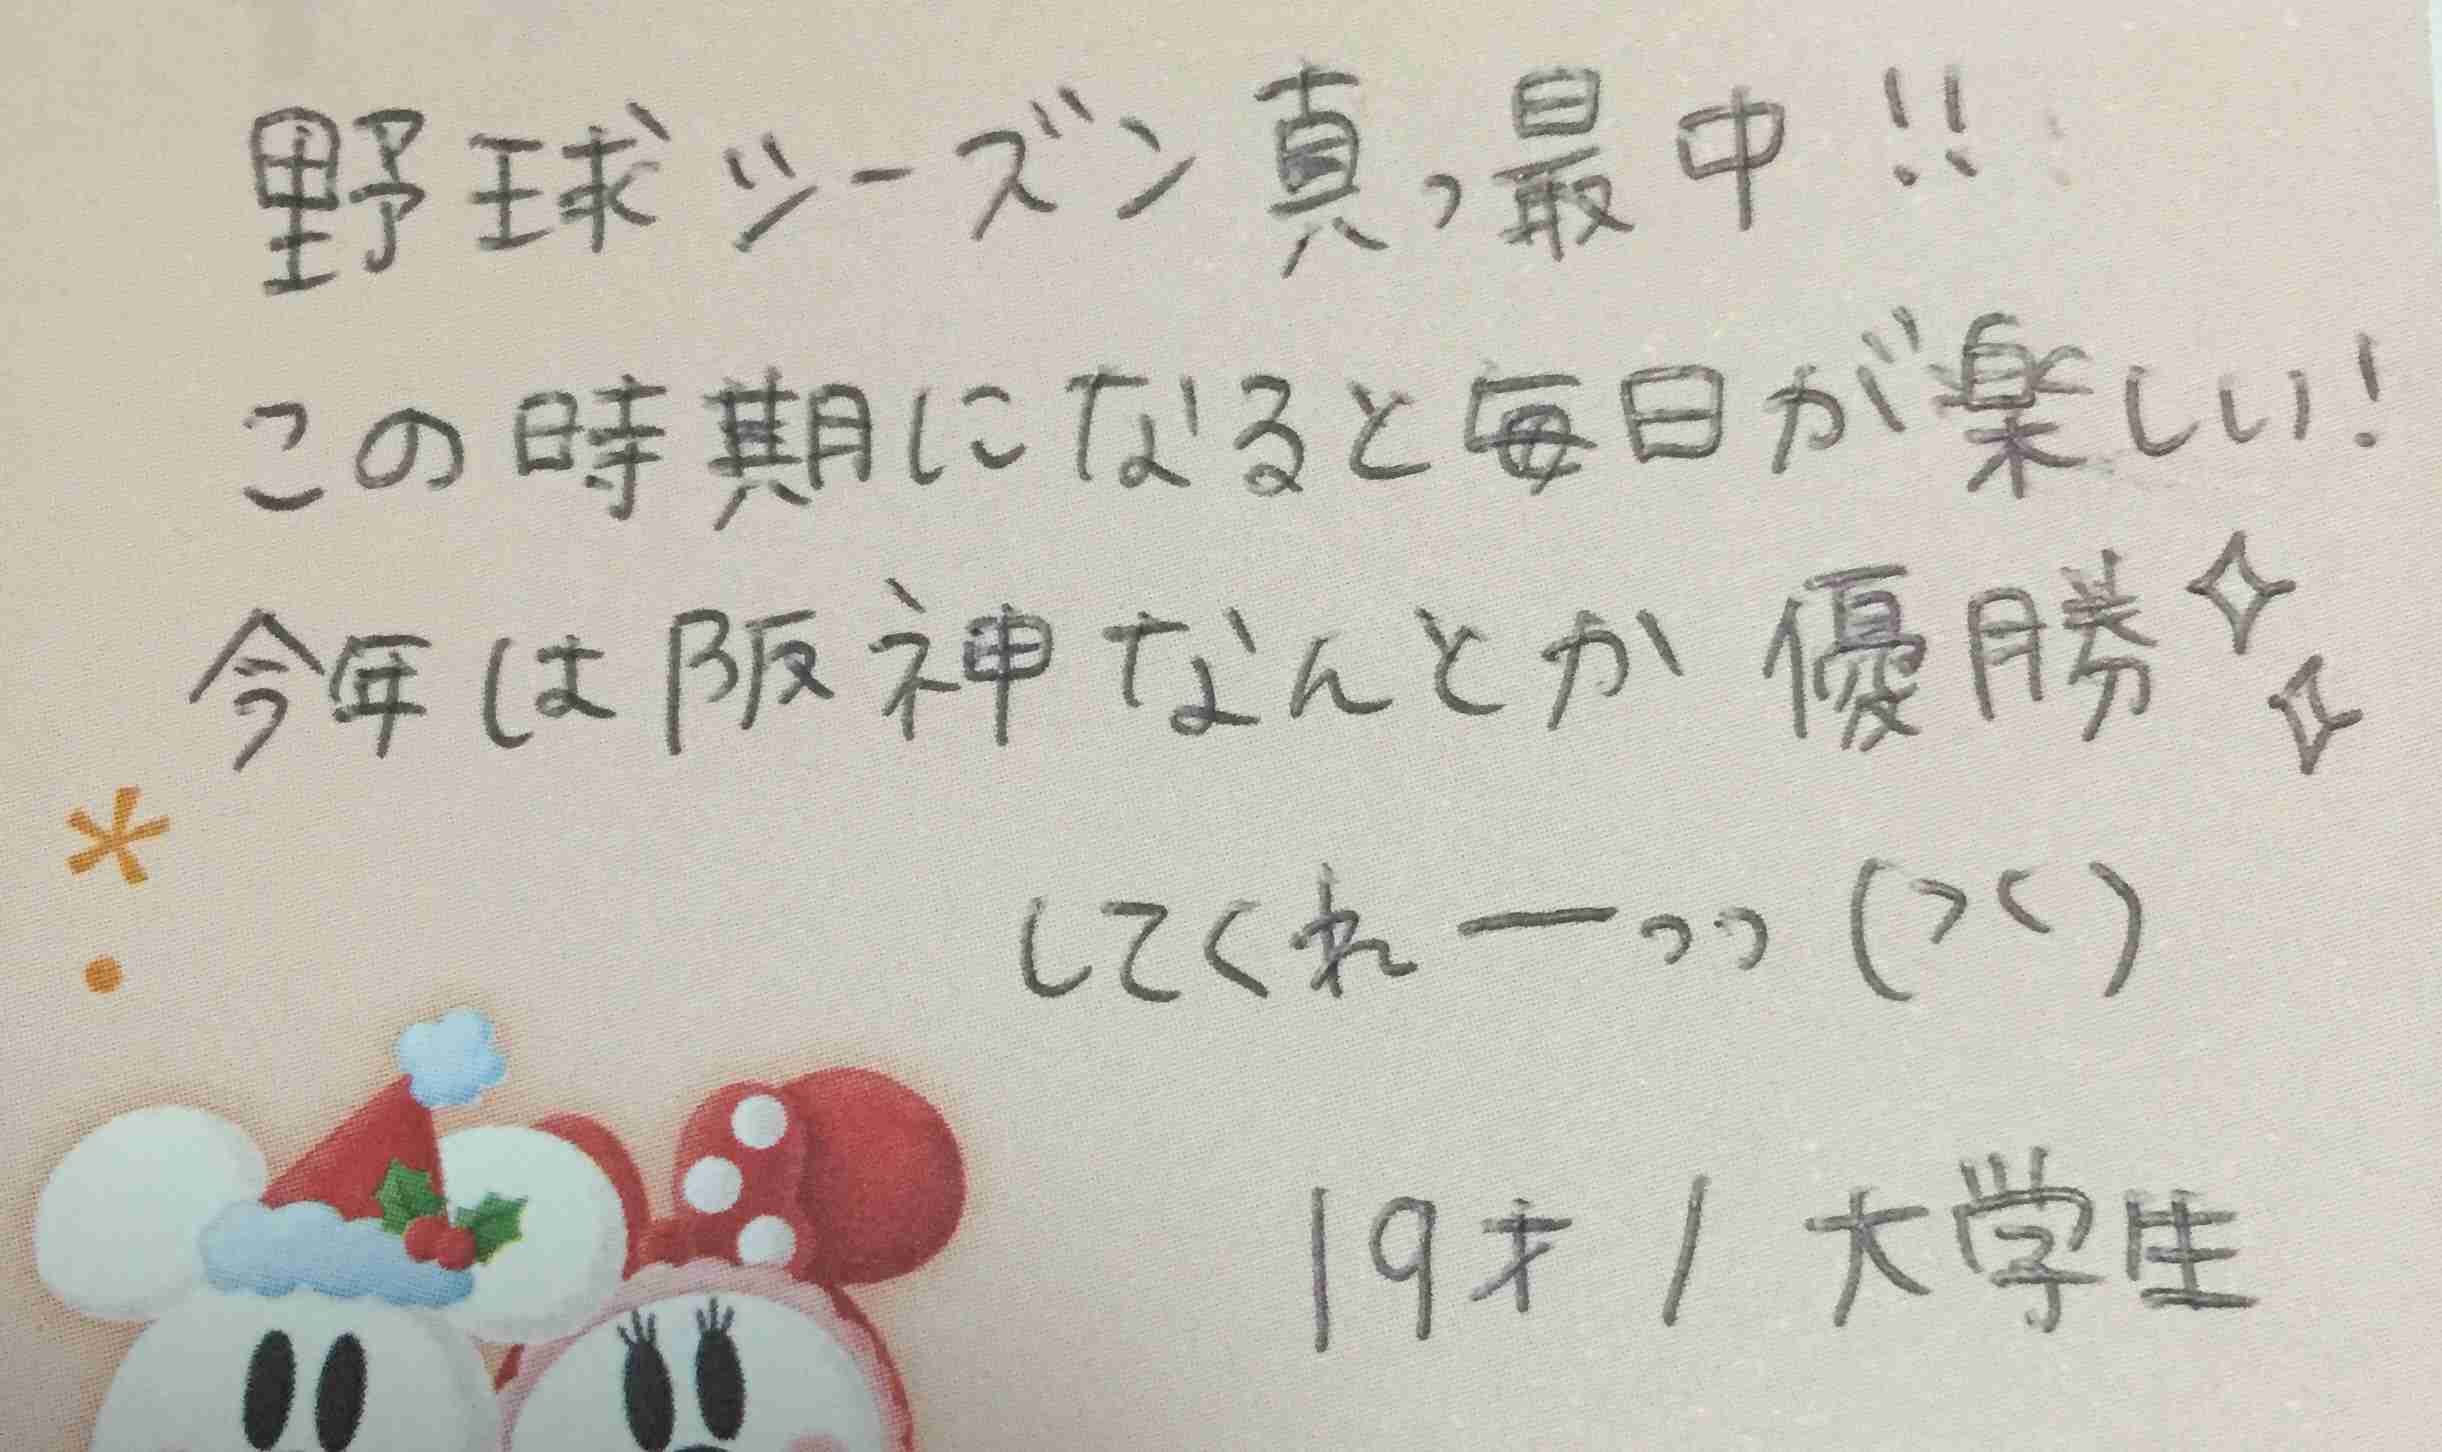 野球シーズン真っ最中!!
この時期になると毎日が楽しい!
今年は阪神なんとか優勝✧✧
してくれーっっ(><)
19才/大学生